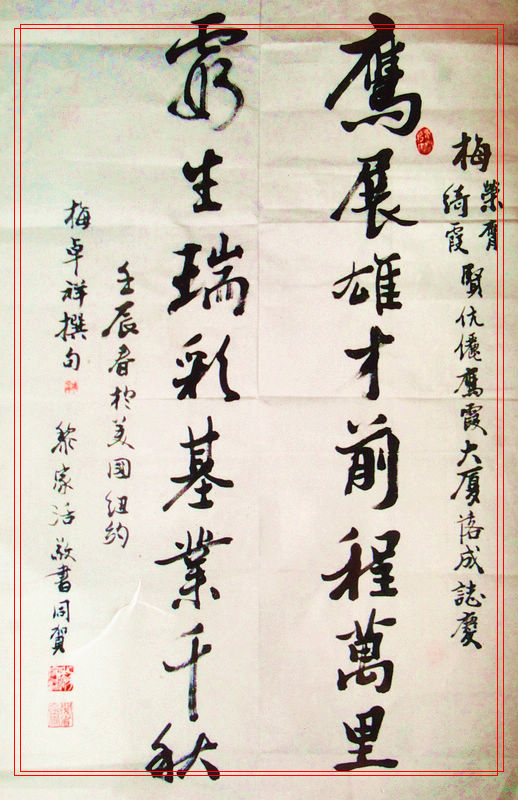 梅榮膺
綺霞賢伉儷鷹霞大廈落成誌慶
鷹展雄才前程萬里
霞生瑞彩基業千秋
壬辰春於美國紐約
梅卓祥撰句 黎家活敬書同賀